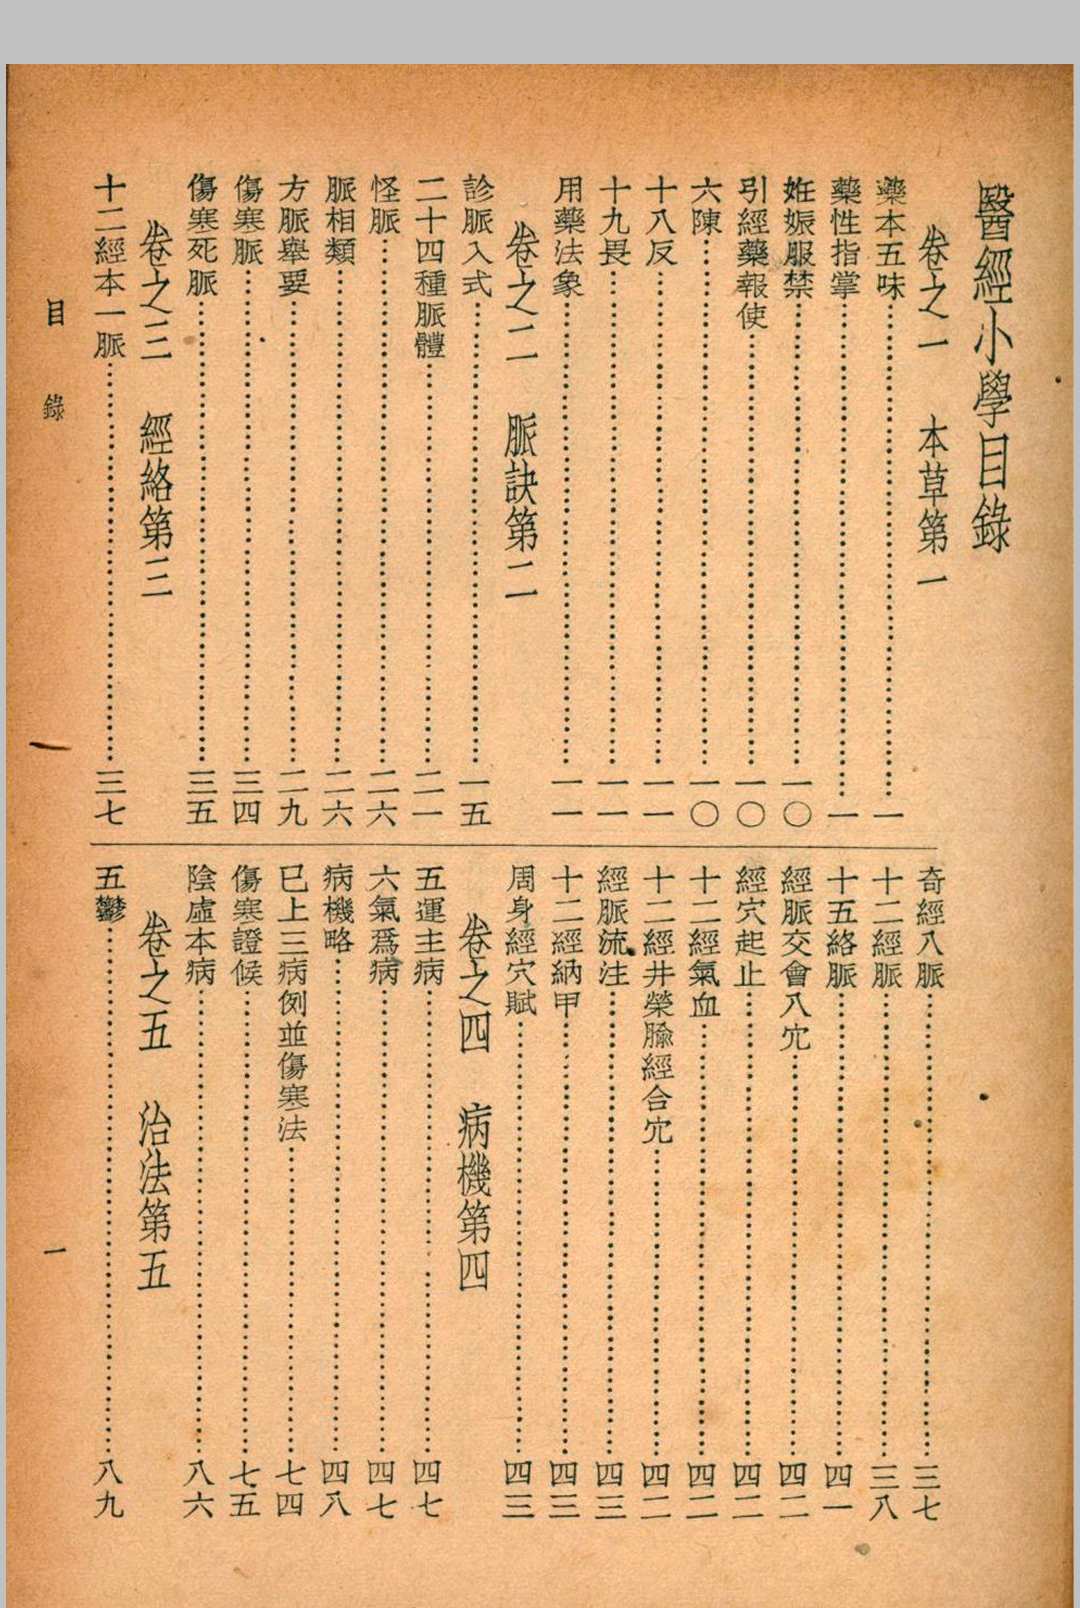 醫經小學目錄
卷之一　本草第一
藥本五味……一
藥性指掌……一
姙娠服禁……一〇
引經藥報使……一〇
六陳……一〇
十八反……一一
十九畏……一一
用藥法象……一一
卷之二　脈訣第二
診脈入式……一五
二十四種脈體……二一
怪脈……二六
脈相類……二六
方脈舉要……二九
傷寒脈……三四
傷寒死脈……三五
卷之三　經絡第三
十二經本一脈……三七
奇經八脈……三七
十二經脈……三八
十五絡脈……四一
經脈交會八穴……四二
經穴起止……四二
十二經氣血……四二
十二經井榮腧經合穴……四二
經脈流注……四三
十二經納甲……四三
周身經穴賦……四三
卷之四　病機第四
五運主病……四七
六氣爲病……四七
病機略……四八
已上三病例並傷寒法……七四
傷寒證候……七五
陰虛本病……八六
卷之五　治法第五
五鬱……八九
目錄
一